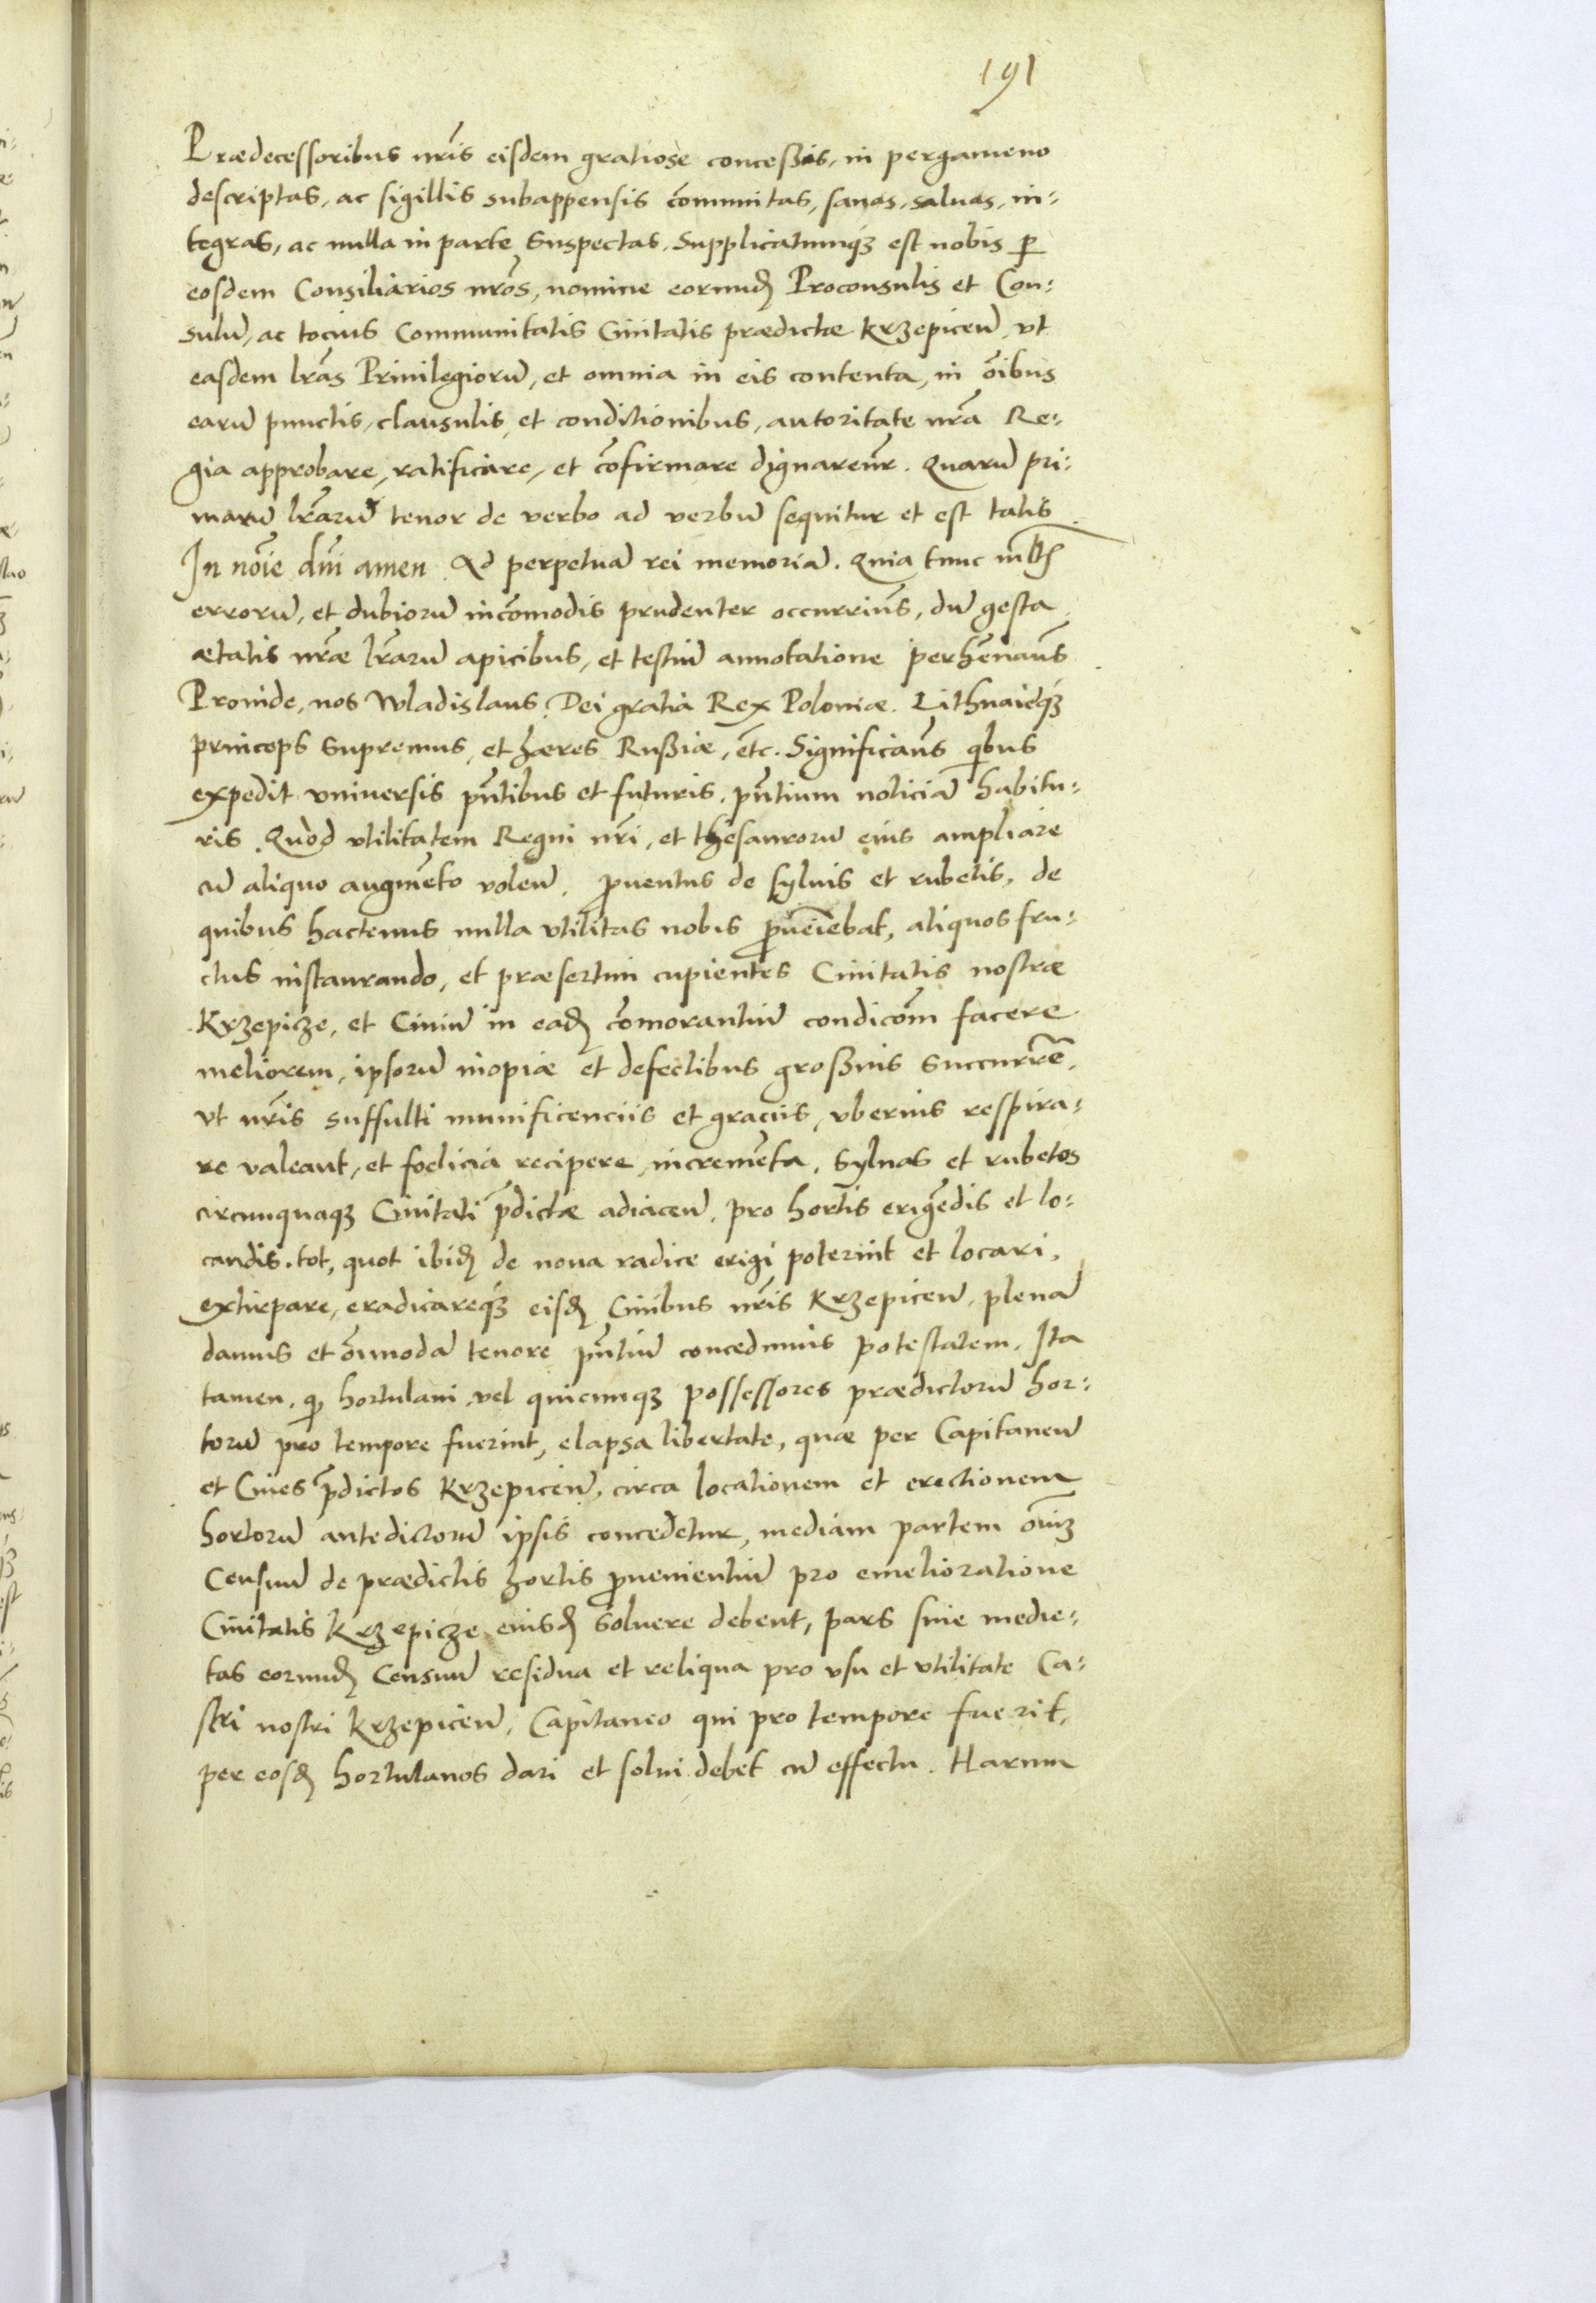 191
Prædecessoribus nr̃is eisdem gratiose conceßis, in pergameno
descriptas, ac sigillis subappensis cõmunitas, sanas, saluas, in-
tegras, ac nulla in parte suspectas. Supplicatumq́ꝫ est nobis ꝑ
eosdem Consiliarios nr̃os, nomine eorund̃ Proconsulis et Con-
sulũ, ac tocius Communitatis Ciuitatis prædictæ Krzepiceñ, vt
easdem lr̃as Priuilegiorũ, et omnia in eis contenta, in oĩbus
earũ punctis, clausulis, et conditionibus, autoritate nr̃a Re-
gia approbare, ratificare, et cõfirmare dignaremr̃. Quarũ pri-
marũ lr̃arũ tenor de verbo ad verbũ sequitur et est talis
In noĩe dñi amen. Ad perpetuã rei memoriã. Quia tunc
errorũ, et dubiorũ incõmodis prudenter occurrim̃s, dũ gesta
ætatis nr̃æ lr̃arũ apicibus, et testiũ annotatione perhẽnam̃s
Proinde, nos Wladislaus Dei gratia Rex Poloniæ. Lithuaieq́ꝫ
princeps supremus, et hæres Rußiæ, etc̃. Significam̃s q̃bus
expedit vniuersis pñtibus et futuris, pñtium noticiã habitu-
ris. Quod vtilitatem Regni nr̃i, et thesaurorũ eius ampliare
cũ aliquo augmẽto voleñ, ꝓuentus de syluis et rubetis, de
quibus hactenus nulla vtilitas nobis ꝓueĩebat, aliquos fru-
ctus instaurando, et præsertim cupientes Ciuitatis nostræ
Krzepicze, et Ciuiũ in ead̃ cõmorantiũ condicõm facere
meliorem, ipsorũ inopiæ et defectibus großius succurrẽ,
vt nr̃is suffulti munificenciis et graciis, vberius respira-
re valeant, et foelicia recipere incremẽta. Syluas et rubetos
circumquaqꝫ Ciuitati p̃dictæ adiaceñ, pro hortis erigẽdis et lo-
candis, tot, quot ibid̃ de noua radice erigi poterint et locari,
extirpare, eradicareq́ꝫ eisd̃ Ciuibus nr̃is Krzepiceñ, plenã
damus et oĩmodã tenore pñtiũ concedimus potestatem. Ita
tamen, qꝫ hortulani, vel quicunqꝫ possessores prædictorũ hor-
torũ pro tempore fuerint, elapsa libertate, quæ per Capitaneũ
et Ciues p̃dictos Krzepiceñ, circa locationem et erectionem
hortorũ antedictorũ ipsis concedetur, mediam partem oĩuꝫ
Censuũ de prædictis hortis ꝓuenientiũ pro emelioratione
Ciuitatis Krzepicze eiusd̃ soluere debent, pars siue medie-
tas eorund̃ Censuũ residua et reliqua pro vsu et vtilitate Ca-
stri nostri Krzepiceñ, Capitaneo qui pro tempore fuerit,
per eosd̃ hortulanos dari et solui debet cũ effectu. Harum